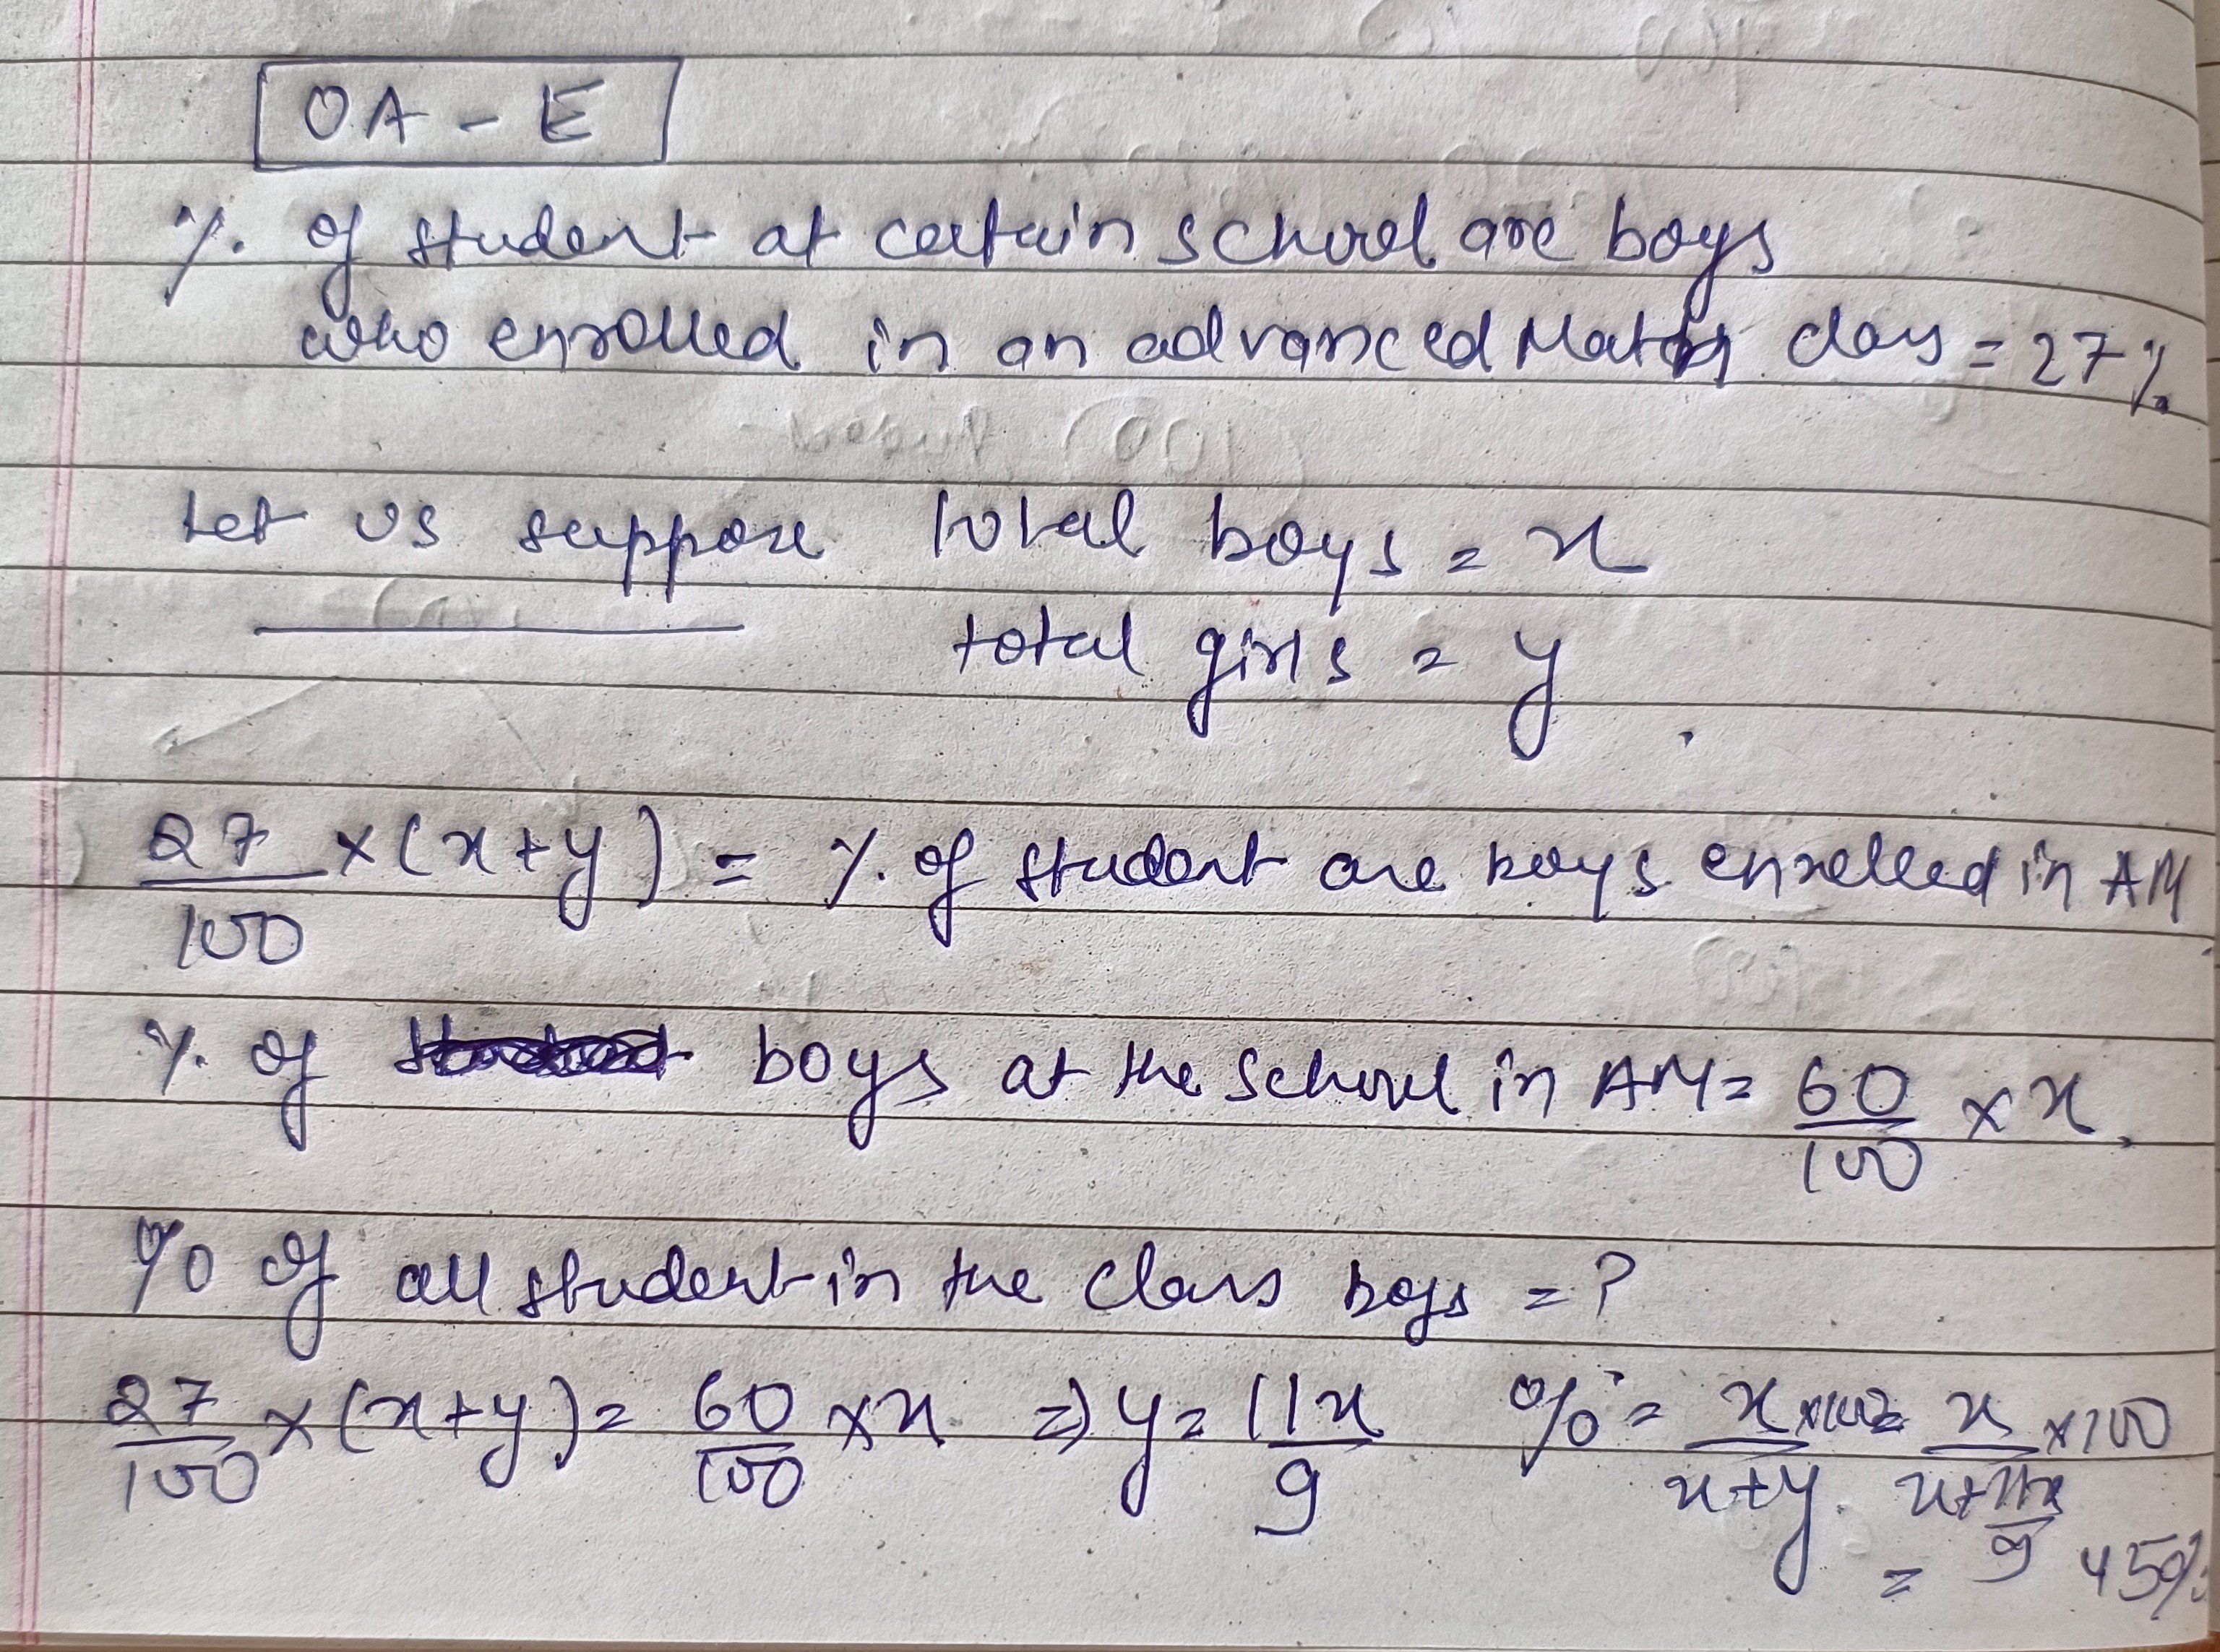 OA - E
% of student at certain school are boys
who enrolled in an advanced Maths class = 27%
Let us suppose total boys = x
total girls = y
27/100 × (x+y) = % of student are boys enrolled in AM
% of boys at the school in AM = 60/100 × x.
% of all student in the class boys = ?
27/100 × (x+y) = 60/100 × x ⇒ y = 11x/9 % = x/(x+y) × 100 = x/(x+11x/9) × 100
= 45%